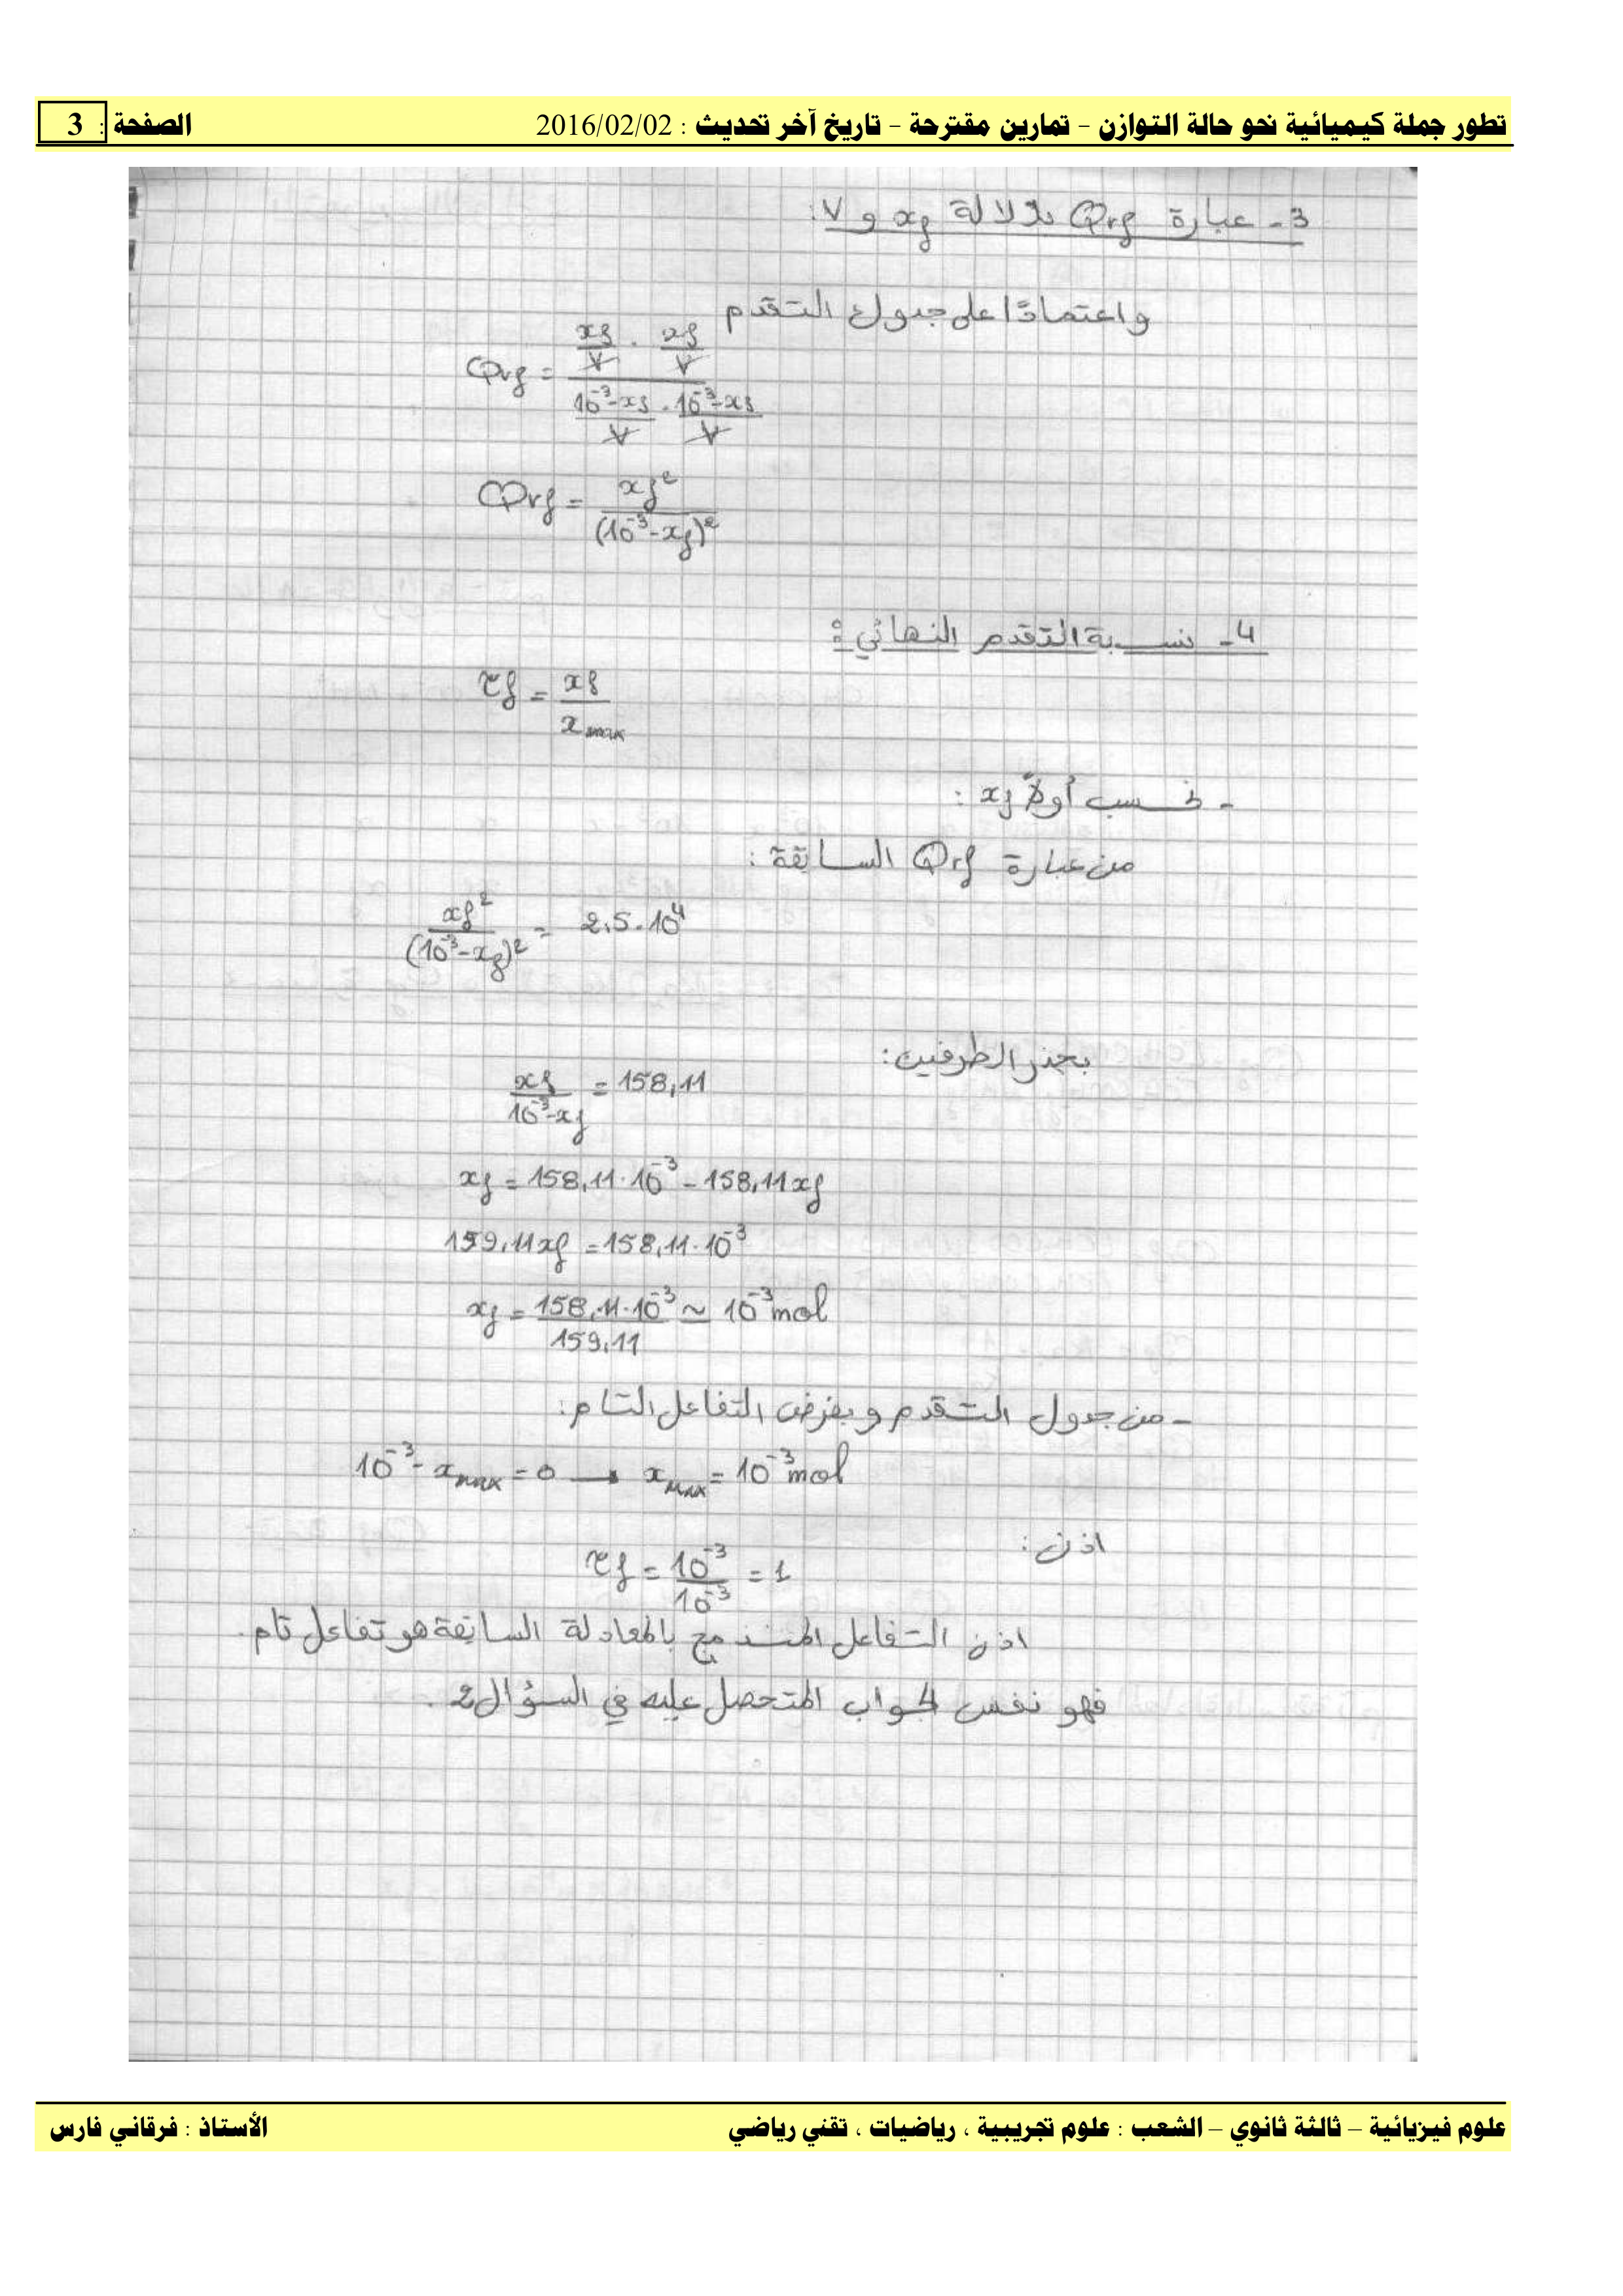 تطور جملة كيميائية نحو حالة التوازن – تمارين مقترحة – تاريخ آخر تحديث : 2016/02/02 الصفحة : 3
3- عبارة Qrf بدلالة xf و V:
واعتمادًا على جدول التقدم
Qrf = (xf/V . xf/V) / (10⁻³-xf/V . 10⁻³-xf/V)
Qrf = xf² / (10⁻³-xf)²
4- نسبة التقدم النهائي:
τf = xf / xmax
- نحسب أولاً xf :
من عبارة Qrf السابقة :
xf² / (10⁻³-xf)² = 2,5.10⁴
بجذر الطرفين:
xf / 10⁻³-xf = 158,11
xf = 158,11.10⁻³ - 158,11xf
159,11xf = 158,11.10⁻³
xf = 158,11.10⁻³ / 159,11 ≃ 10⁻³mol
- من جدول التقدم وبفرض التفاعل التام:
10⁻³- xmax = 0 → xmax = 10⁻³mol
اذن :
τf = 10⁻³ / 10⁻³ = 1
اذن التفاعل المنمذج بالمعادلة السابقة هو تفاعل تام.
فهو نفس الجواب المتحصل عليه في السؤال 2.
علوم فيزيائية – ثالثة ثانوي – الشعب : علوم تجريبية ، رياضيات ، تقني رياضي الأستاذ : فرقاني فارس